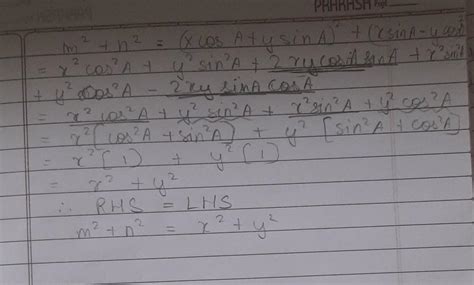 PARAKASH
m² + n² = (x cos A + y sin A)² + (x sin A - y cos
= x² cos² A + y² sin² A + 2xy cos A sin A + x² sin² A
+ y² cos² A - 2xy sin A cos A
= x² cos² A + y² sin² A + x² sin² A + y² cos² A
= x² [cos² A + sin² A] + y² [sin² A + cos² A]
= x² (1) + y² (1)
= x² + y²
∴ RHS = LHS
m² + n² = x² + y²